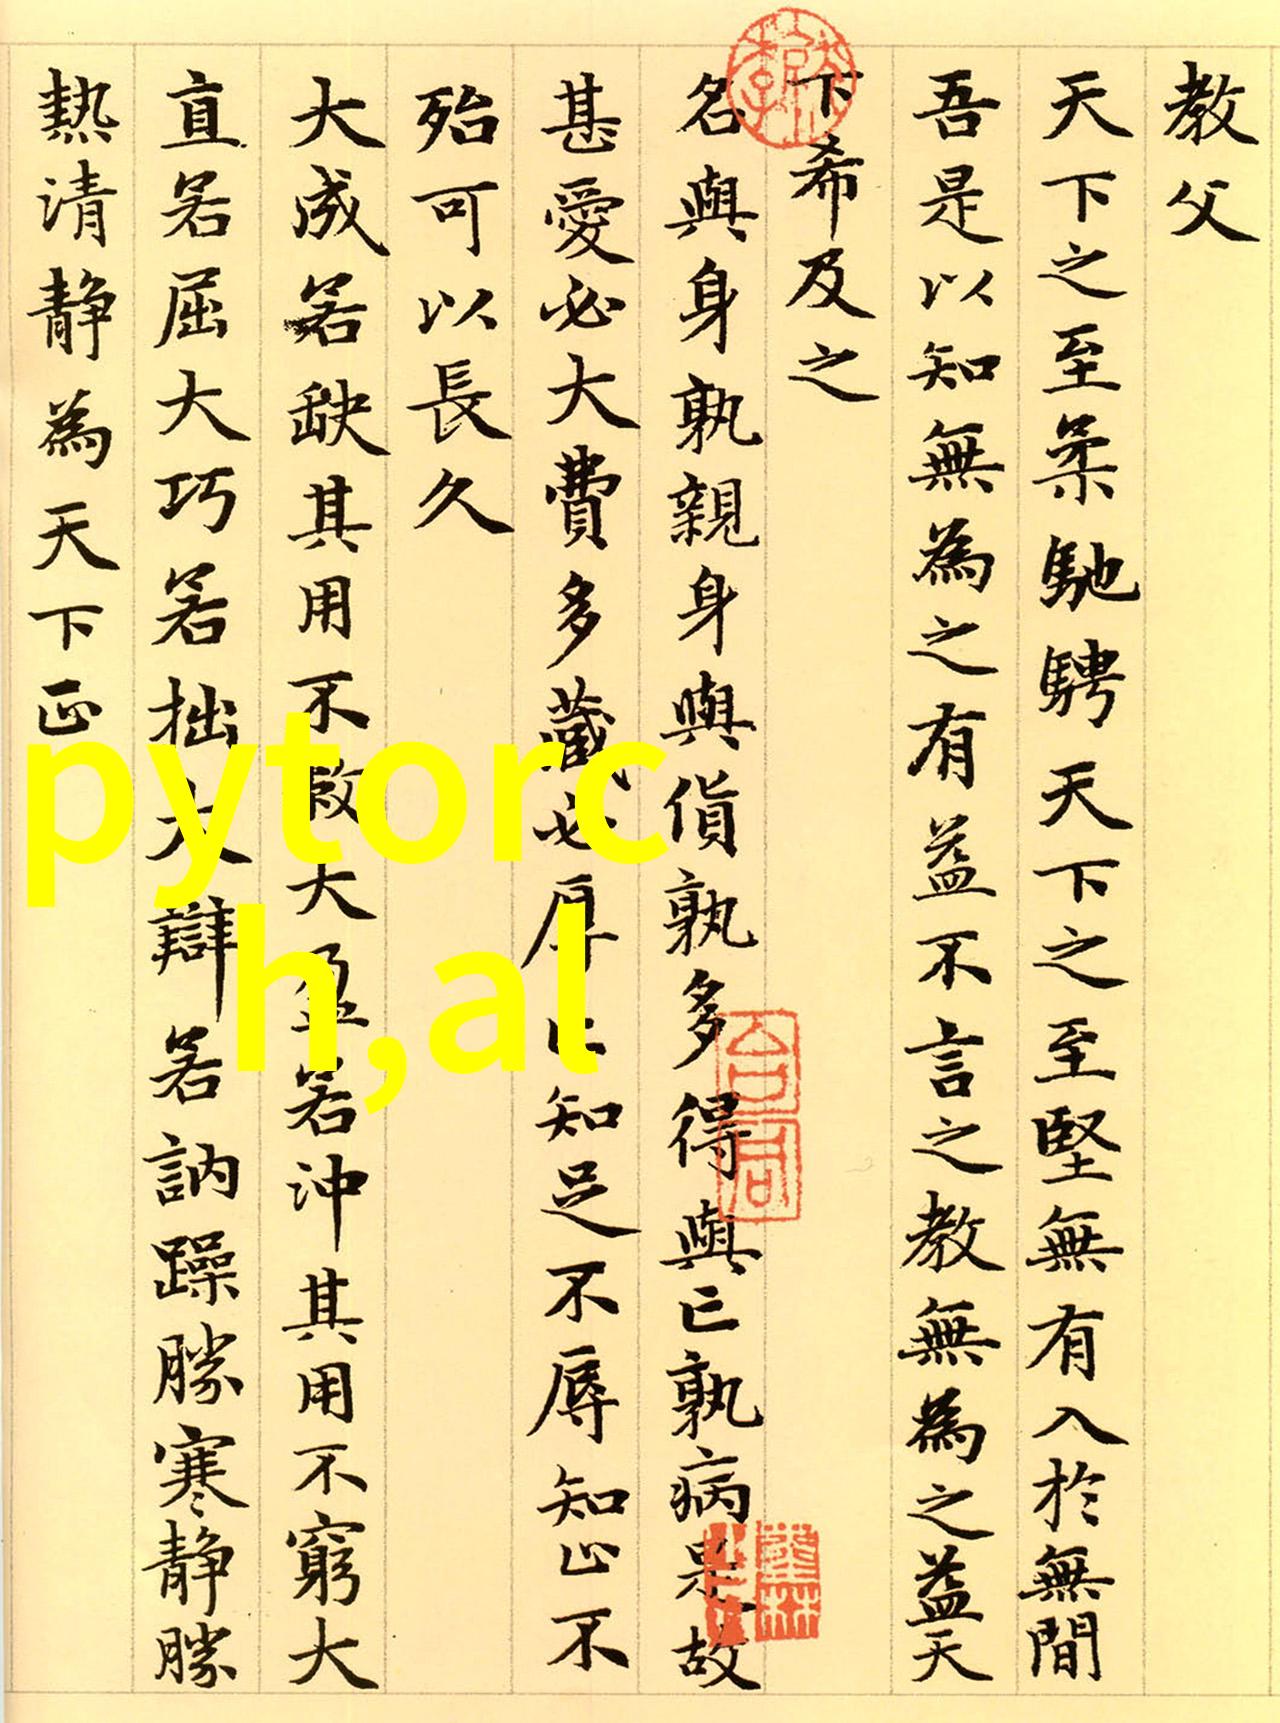 教父
天下之至柔馳騁天下之至堅無有入於無間
吾是以知無為之有益不言之教無為之益天
下希及之
名與身孰親身與貨孰多得與亡孰病是故
甚愛必大費多藏必厚亡知足不辱知止不
殆可以長久
大成若缺其用不敝大盈若沖其用不窮大
直若屈大巧若拙大辯若訥躁勝寒静勝
熱清静為天下正
pytorc
h,al